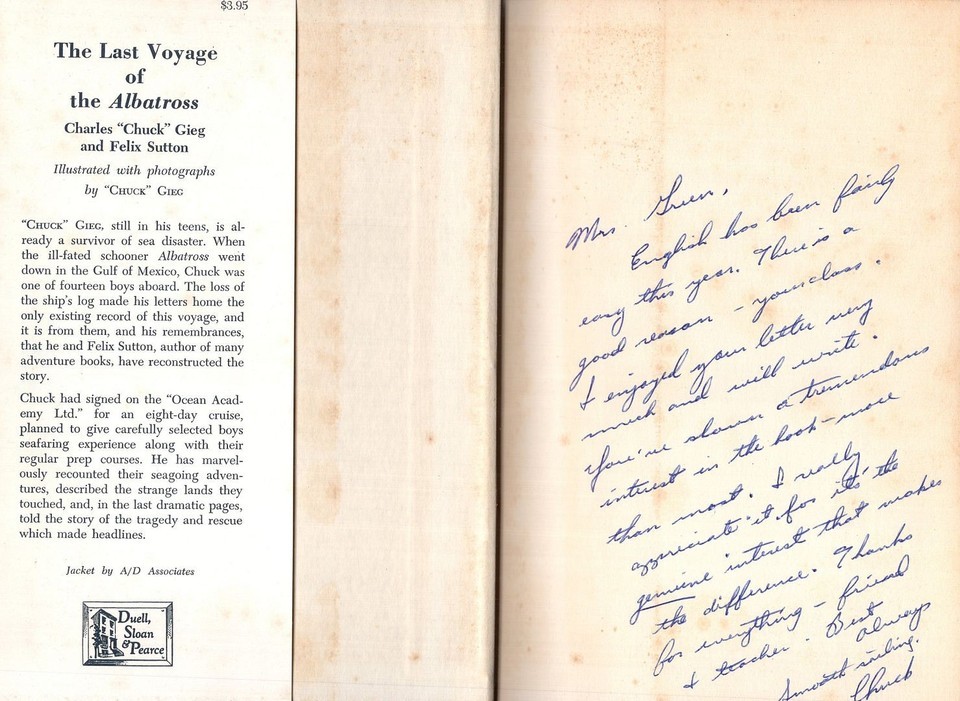 $3.95
The Last Voyage
of
the Albatross
Charles “Chuck” Gieg
and Felix Sutton
Illustrated with photographs
by “CHUCK” GIEG
“CHUCK” GIEG, still in his teens, is al-
ready a survivor of sea disaster. When
the ill-fated schooner Albatross went
down in the Gulf of Mexico, Chuck was
one of fourteen boys aboard. The loss of
the ship’s log made his letters home the
only existing record of this voyage, and
it is from them, and his remembrances,
that he and Felix Sutton, author of many
adventure books, have reconstructed the
story.
Chuck had signed on the “Ocean Acad-
emy Ltd.” for an eight-day cruise,
planned to give carefully selected boys
seafaring experience along with their
regular prep courses. He has marvel-
ously recounted their seagoing adven-
tures, described the strange lands they
touched, and, in the last dramatic pages,
told the story of the tragedy and rescue
which made headlines.
Jacket by A/D Associates
Duell,
Sloan
& Pearce
Mrs. Green,
English has been fairly
easy this year. There is a
good reason – your class.
I enjoyed your letter very
much and will write.
You've shown a tremendous
interest in the book – more
than most. I really
appreciate it for it's the
genuine interest that makes
the difference. Thanks
for everything – friend
& teacher. Best always
Smooth sailing.
Chuck